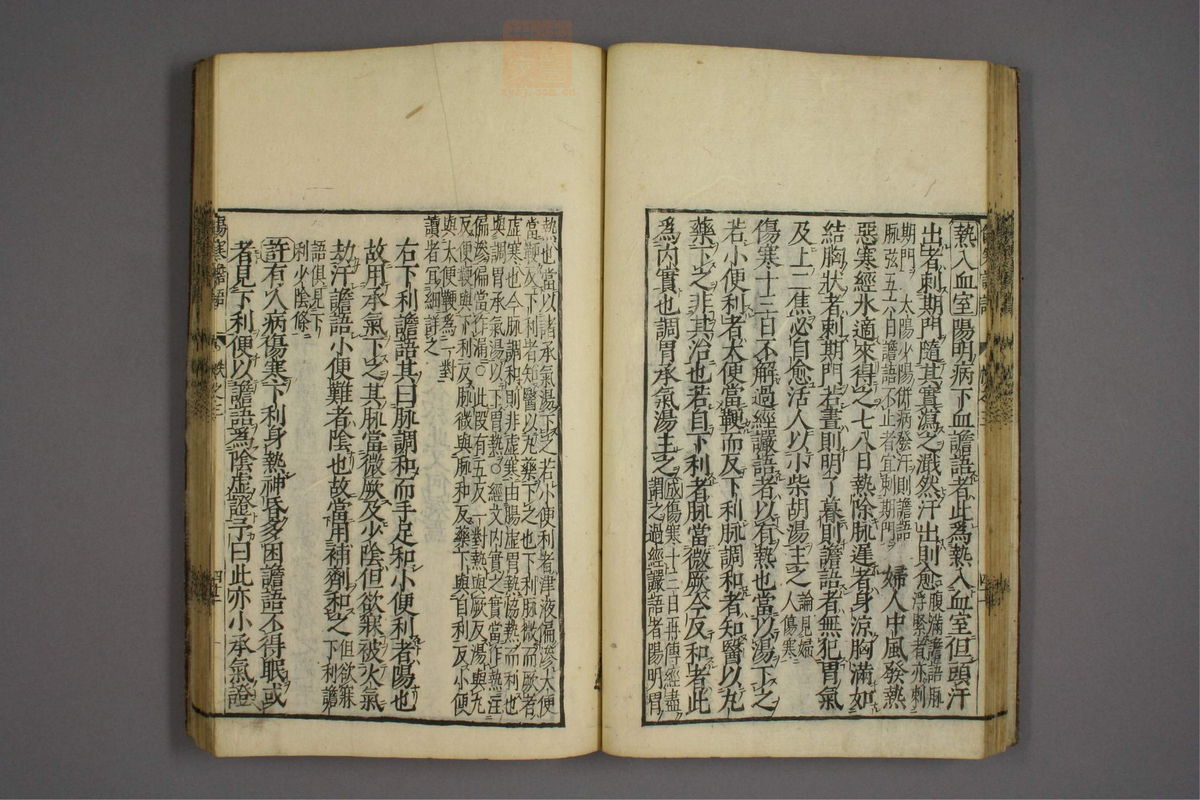 熱入血室陽明病下血譫語者此爲熱入血室但頭汗
出者刺期門隨其實瀉之濈然汗出則愈
腹滿譫語脉
浮緊者亦刺
期門 太陽少陽併病發汗則譫語
脉弦五六日譫語不止者宜刺期門
婦人中風發熱
惡寒經水適來得之七八日熱除脉遲者身涼胸滿如
結胸狀者刺期門若晝則明了暮則譫語者無犯胃氣
及上二焦必自愈活人以小柴胡湯主之
論見婦
人傷寒
傷寒十三日不解過經讝語者以有熱也當以湯下之
若小便利者大便當鞕而反下利脉調和者知醫以丸
藥下之非其治也若自下利者脉當微厥今反和者此
爲内實也調胃承氣湯主之
成傷寒十三日再傳經盡
謂之過經讝語者陽明胃
熱也當以諸承氣湯下之若小便利者津液偏滲大便
當鞕反下利者知醫以丸藥下之也下利脉微而厥者
虚寒也今脉調和則非虚寒由腸虚胃熱協熱而利也
與調胃承氣湯以下胃熱○經文内實之實當作熱注
偏滲偏當作滿○此段有五反一對熱與厥反湯與丸
反便鞕與下利反脉微與脉和反藥下與自利反小便
與大便鞕爲一對
讀者宜細詳之
右下利譫語其曰脉調和而手足和小便利者陽也
故用承氣下之其脉當微厥及少陰但欲寐被火氣
劫汗譫語小便難者陰也故當用補劑和之
但欲寐
下利譫
語俱見下
利少陰條
許有人病傷寒下利身熱神昏多困譫語不得眠或
者見下利便以譫語爲陰虚證予曰此亦小承氣證
傷寒譫語